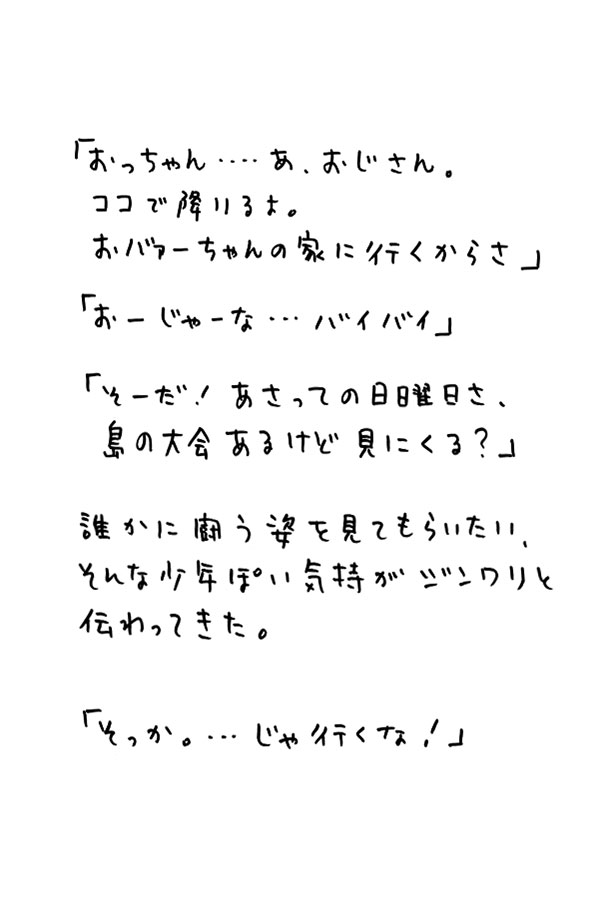 「おっちゃん‥‥あ、おじさん。
ココで降りるよ。
おバァーちゃんの家に行くからさ」
「おーじゃーな…バイバイ」
「そーだ！あさっての日曜日さ、
島の大会あるけど見にくる？」
誰かに闘う姿を見てもらいたい、
そんな少年ぽい気持がジンワリと
伝わってきた。
「そっか。…じゃ行くな！」